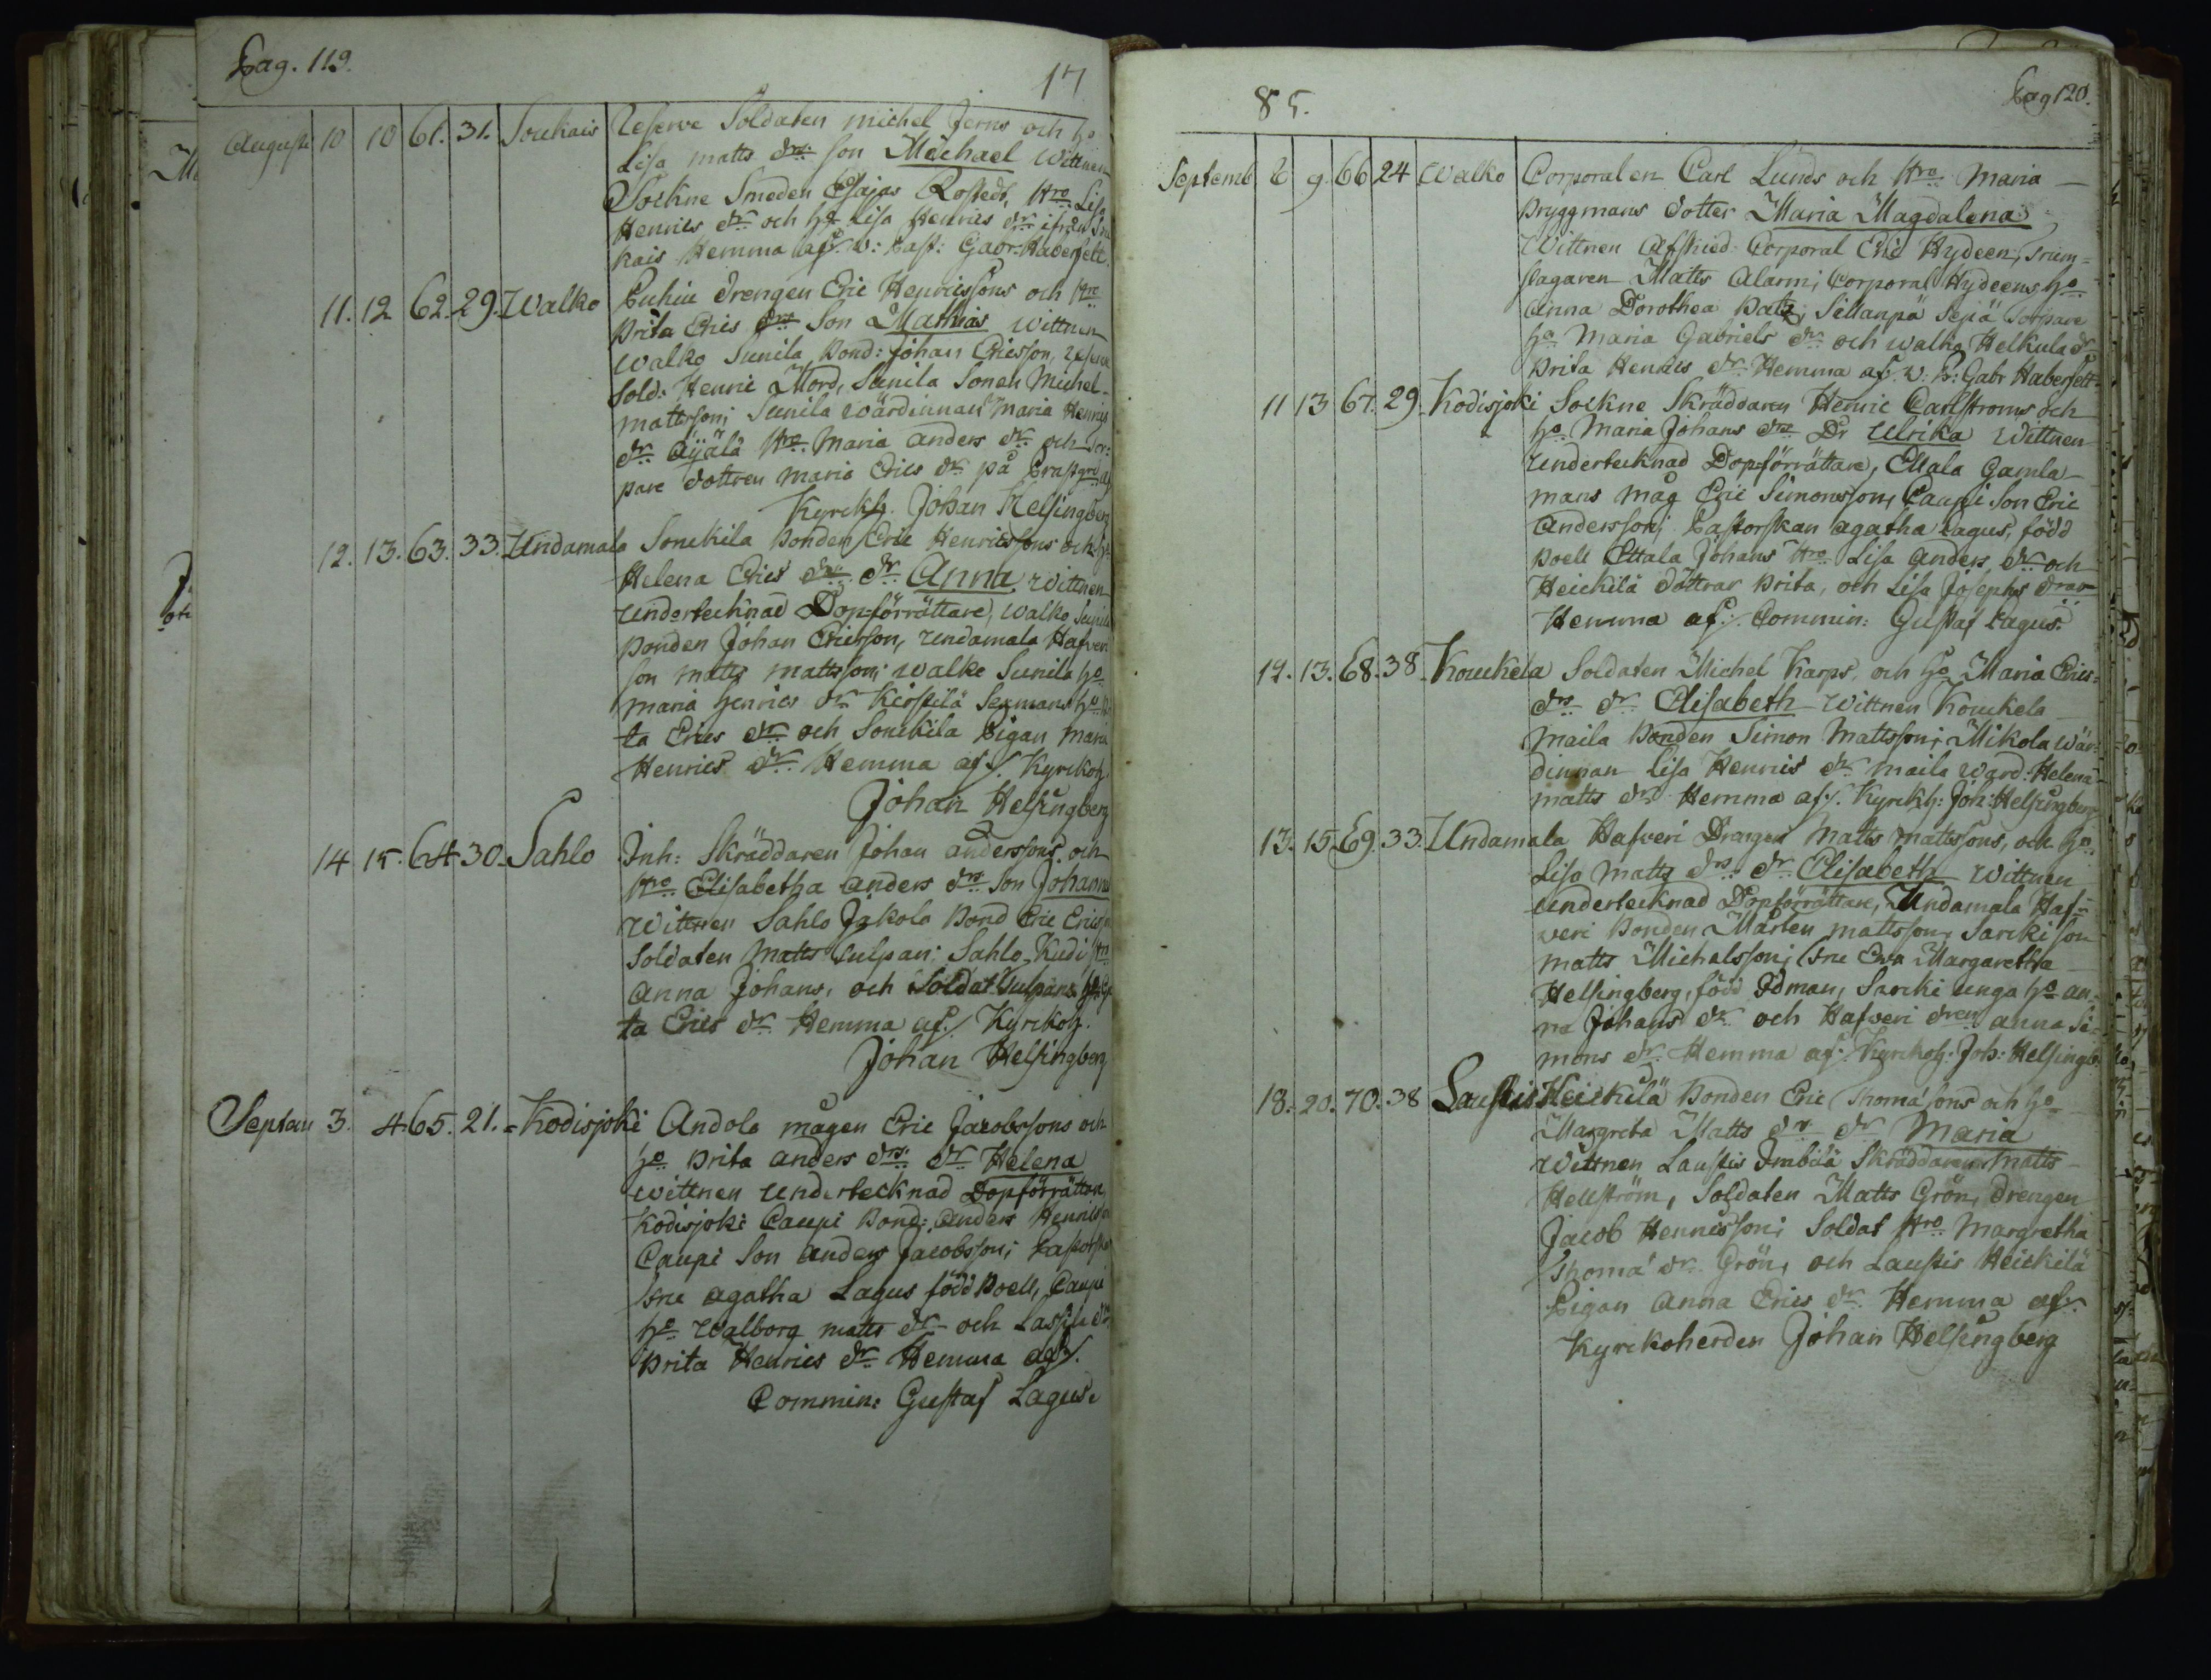 Pag. 119.
17
Augusti 10 10 61. 31. Soukais Reserve Soldaten michel Jerns och ho
Lisa matts drs son Michael Wittnen
Sockne Smeden Esajas Rostedt, Hro Lisa
Henrics dr och ho Lisa Henrics dr ifrån Sou
kais Hemma af v: Past: Gabr: Haberfelt.
11. 12 62. 29. Walko Puhiu drengen Eric Henricssons och Hro
Brita Erics drs Son Mathias Wittnen
Walko Sunila Bond: Johan Ericsson, reserve
Sold: Henric Mord, Sunila Sonen Michel
mattsson; Sunila wärdinnan Maria Henrics
dr Äÿälä Hro Maria anders dr och Tor:
pare dottren maria Erics dr på Prastgrd af
Kyrckh. Johan Helsingberg
12. 13. 63. 33. Undamala Sonckila Bonden Eric Henricssons och ho
Helena Erics drs dr Anna Wittnen
undertecknad Dopförrättare, walko Sunila
Bonden Johan Ericsson, undamala Hafveri
son matts mattsson; walko Sunila ho
maria henrics dr Kerstilä Sexmans ho
ta Erics dr och Sonckila Pigan Maria
Henrics dr Hemma af/. Kyrckoh
Johan Helsingberg
14 15. 64 30. Sahlo Inh: Skräddaren Johan anderssons och
Hro Elisabetha anders drs Son Johannes
Wittnen Sahlo Jäkola Bond Eric Ericsson
Soldaten Matts Tulpan; Sahlo Kudi Hro
Anna Johans, och Soldat Tulpans ho
ta Erics dr Hemma af./ Kyrckoh.
Johan Helsingberg
Septem 3. 4. 65. 21. Kodisjoki Andola mågen Eric Jacobssons och
ho Brita anders drs dr Helena
wittnen undertecknad Dopförrättare
Kodisjoki Caupi Bond: anders Henricsson
Caupi Son anders Jacobsson; Pastorskan
fru agatha Lagus född Poell, Caupi
ho Walborg matts dr och Lassila dr
Brita Henrics dr Hemma af/.
Commin: Gustaf Lagus.
85.
Pag 120.
Septemb 6 9. 66 24 Walko Corporalen Carl Lunds och Hro Maria
Bryggmans dotter Maria Magdalena
Wittnen Afskied Corporal Eric Hydeen, Trum=
slagaren Matts Alarm; Corporal Hydeens ho
Anna Dorothea Patz, Sillanpä Sejiä torpare
ho Maria Gabriels dr och walko Helkula dr
Brita Henrics dr Hemma af. v: P: Gabr Haberfelt
11 13 67. 29. Kodisjoki Sockne Skräddaren Henric Carlstroms och
ho Maria Johans drs Dr Ulrika Wittnen
undertecknad Dopförrättare, Ettala Gamla
mans måg Eric Simonsson, Caupi Son Eric
andersson; Pastorskan agatha Lagus, född
Poell Ettala Johans Hro Lisa anders dr och
Heickilä döttrar Brita, och Lisa Josephs drar
Hemma af./. Commin: Gustaf Lagus.
12. 13. 68. 38. Kouckela Soldaten Michel Karps, och ho Maria Erics=
drs dr Elisabeth Wittnen Kouckela
Maila Bonden Simon Mattsson; Mikola wär=
dinnan Lisa Henrics dr maila wärd: Helena
matts dr Hemma af/. Kyrckh: Joh: Helsingberg
13. 15. 69. 33. Undamala Hafveri Drengen Matts mattssons, och ho
Lisa Matts drs dr Elisabeth Wittnen
undertecknad Dopförrättare, Undamala Haf=
veri Bonden Mårten mattsson, Sarcki son
matts Michalsson; fru Eva Margaretha
Helsingberg, född Idman, Sarcki unga ho an=
na Johans dr och Hafveri dren anna Si=
mons dr Hemma af: Kyrckoh: Joh: Helsingb.
18. 20. 70. 38 Laustis Heickilä Bonden Eric Thomæsons och ho
Margreta Matts drs dr Maria
Wittnen Laustis Imbilä Skräddaren Matts
Hellström, Soldaten Matts Grön, drengen
Jacob Henricsson; Soldat Hro Margretha
Thomæ dr Grön, och Laustis Heickilä
Pigan Anna Erics dr Hemma af/.
Kyrckoherden Johan Helsingberg